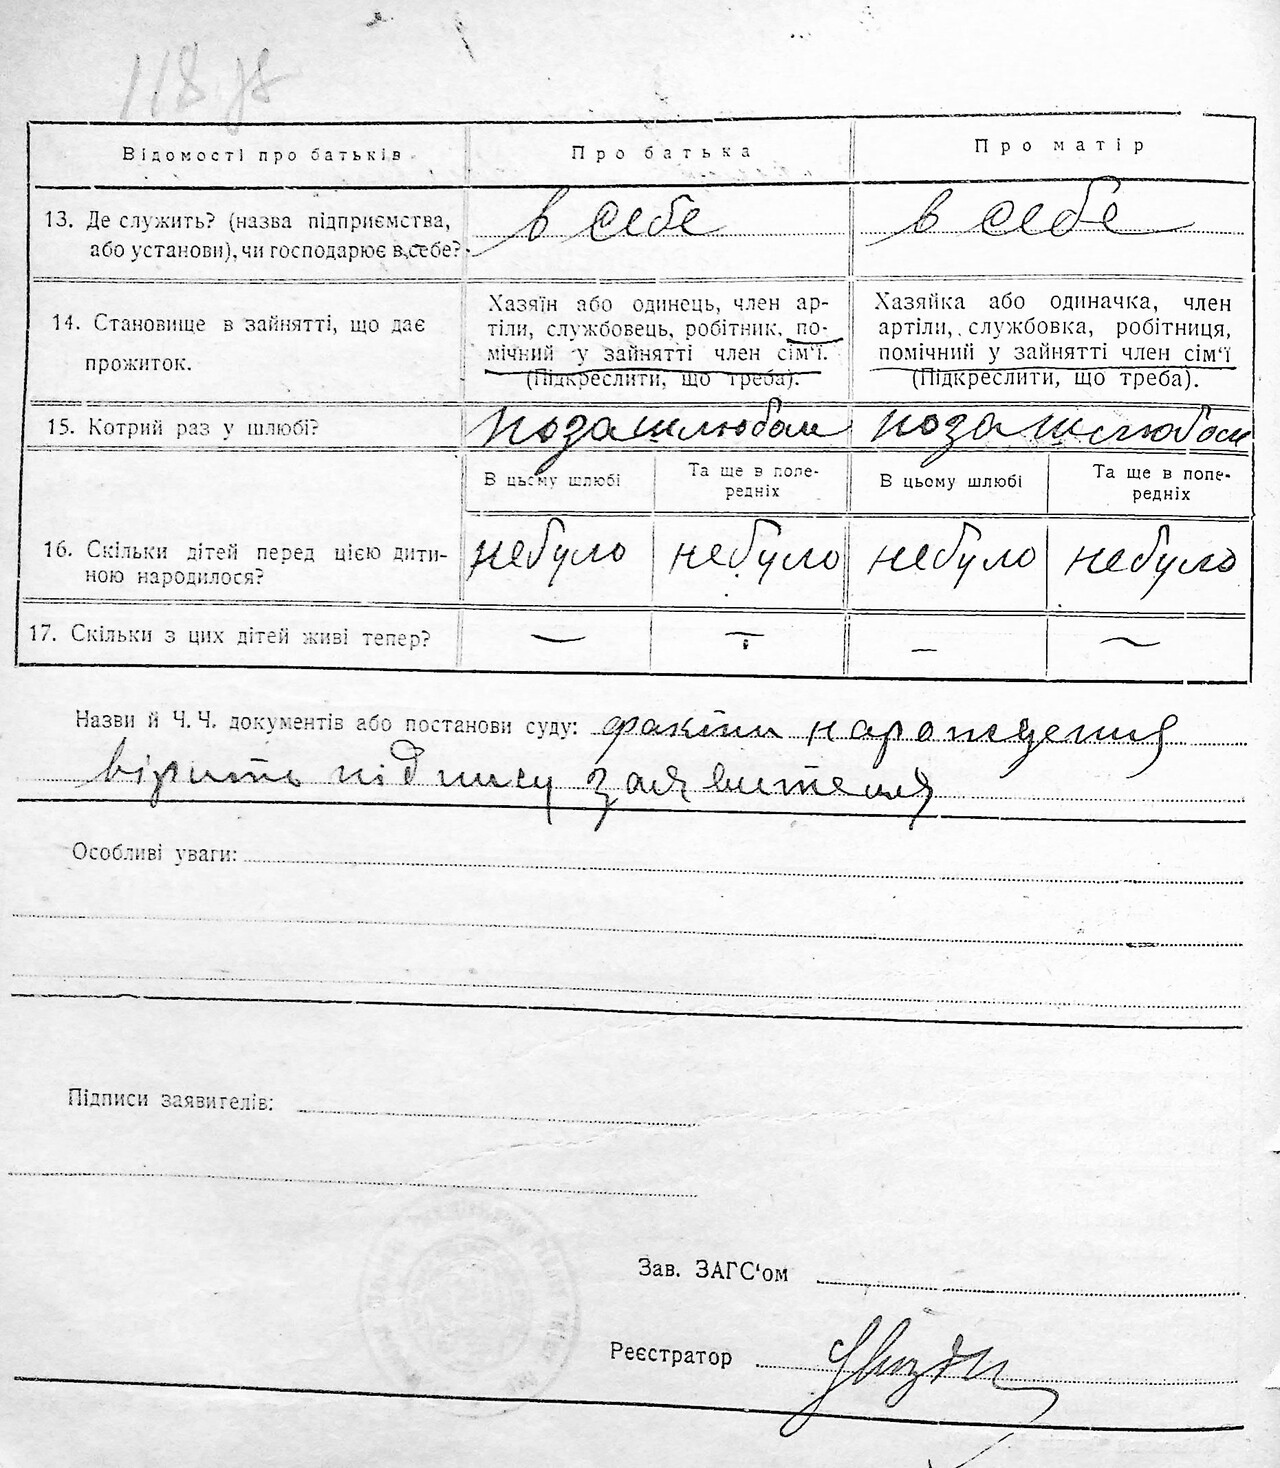 118
Відомості про батьків
Про батька
Про матір
13. Де служить? (назва підприємства,
або установи), чи господарює в себе?
в себе
в себе
14. Становище в зайнятті, що дає
прожиток.
Хазяїн або одинець, член ар-
тіли, службовець, робітник, по-
мічний у зайнятті член сім'ї.
(Підкреслити, що треба).
Хазяйка або одиначка, член
артіли, службовка, робітниця,
помічний у зайнятті член сім'ї
(Підкреслити, що треба).
15. Котрий раз у шлюбі?
поза шлюбом
поза шлюбом
В цьому шлюбі
Та ще в попе-
редніх
В цьому шлюбі
Та ще в попе-
редніх
16. Скільки дітей перед цією дити-
ною народилося?
небуло
небуло
небуло
небуло
17. Скільки з цих дітей живі тепер?
—
—
—
—
Назви й Ч. Ч. документів або постанови суду: нарождения
підпису заявителя
Особливі уваги:
Підписи заявителів:
Зав. ЗАГС'ом
Реєстратор